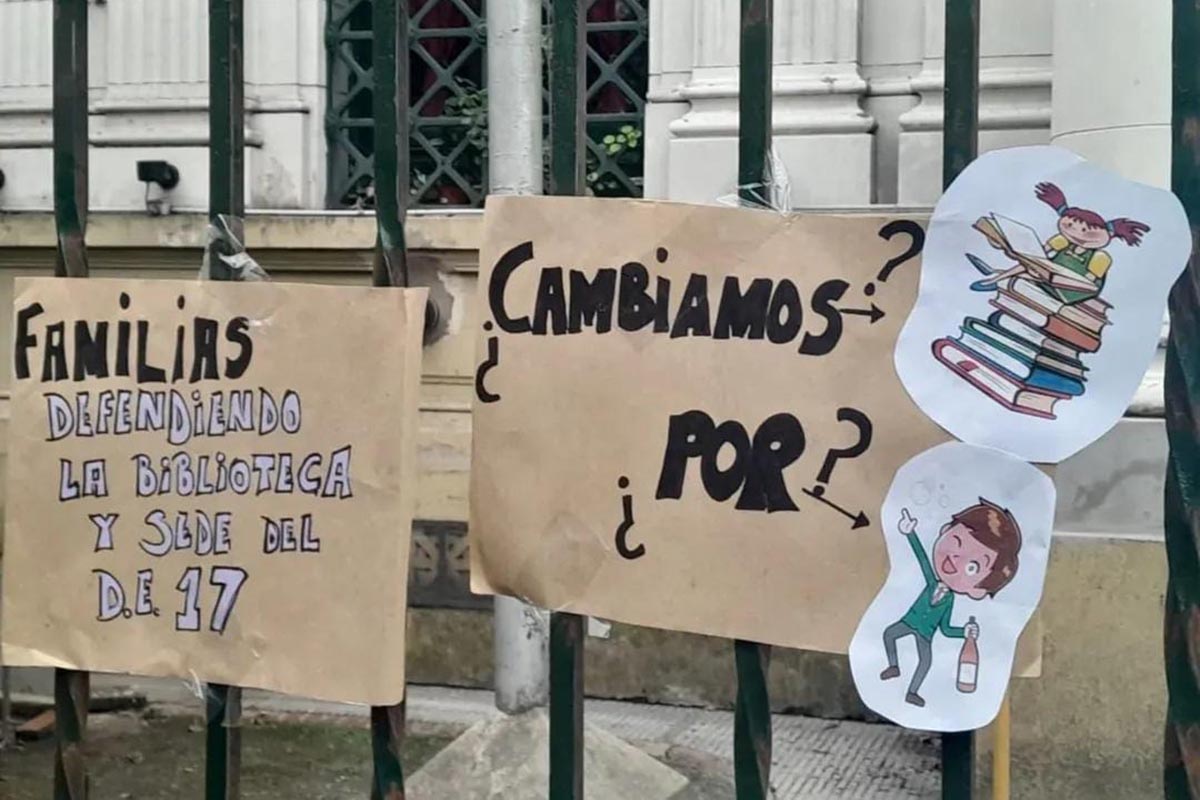 FANILIAS
DEFENDIENDO
LA BIBLIOTECA
Y SEDE DEL
D.E. 17
¿CAMBIAMOS ?
¿ POR ?